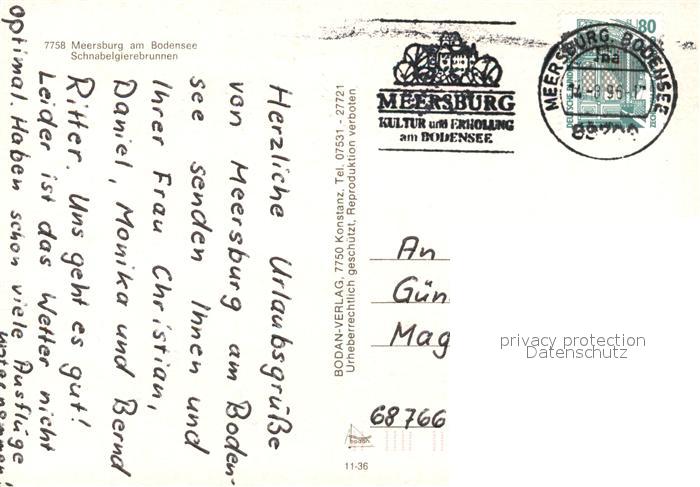 7758 Meersburg am Bodensee
Schnabelgierebrunnen
Herzliche Urlaubsgrüße
von Meersburg am Boden-
see senden Ihnen und
Ihrer Frau Christian,
Daniel, Monika und Bernd
Ritter. Uns geht es gut!
Leider ist das Wetter nicht
optimal. Haben schon viele Ausflüge
BODAN-VERLAG, 7750 Konstanz, Tel. 07531 - 27721
Urheberrechtlich geschützt, Reproduktion verboten
MEERSBURG
KULTUR und ERHOLUNG
am BODENSEE
MEERSBURG, BODENSEE
80
An
Gün
Mag
68766
privacy protection
Datenschutz
BODAN
11-36